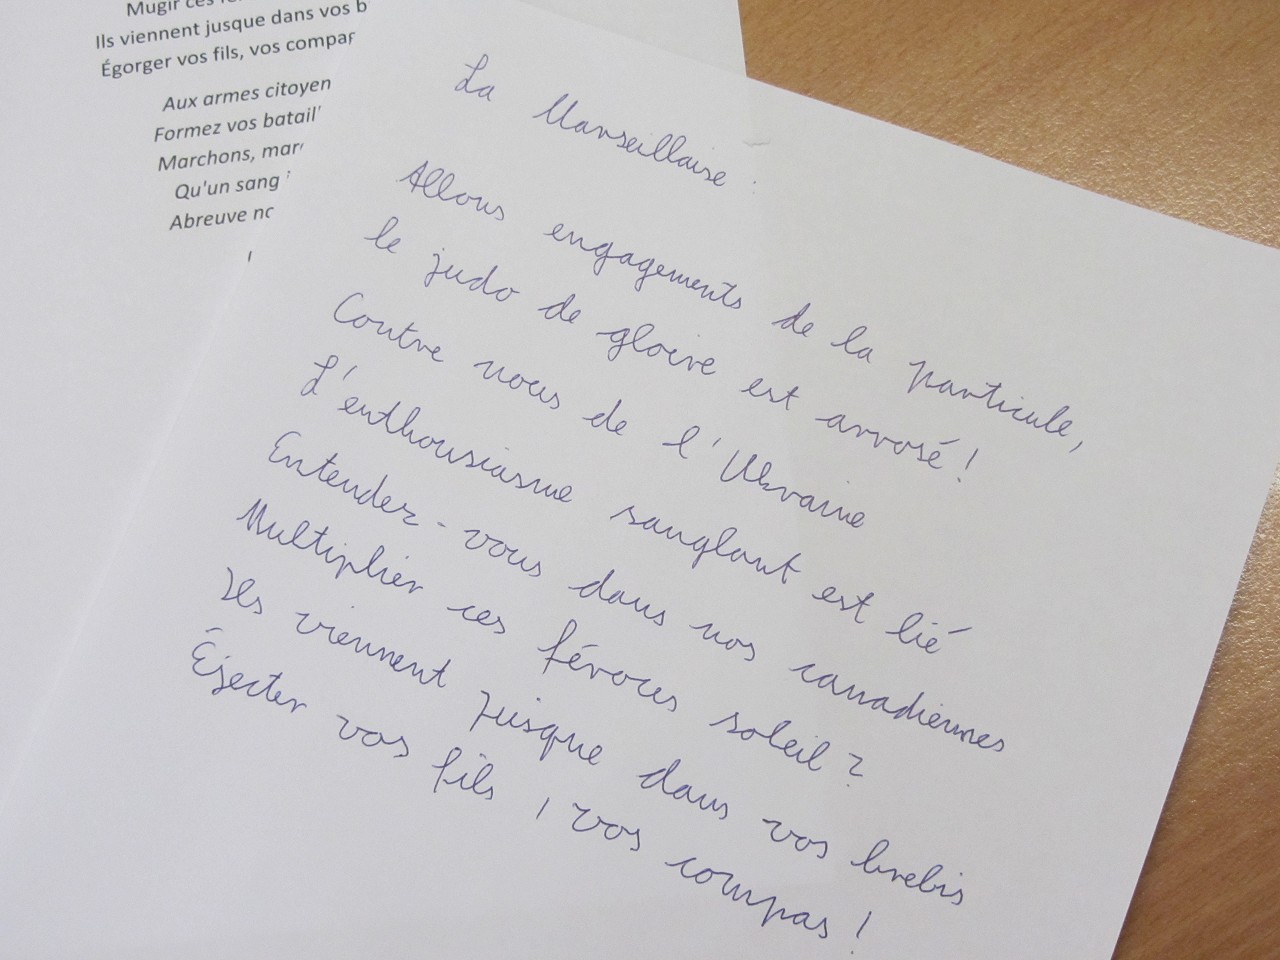 Mugir ces
Ils viennent jusque dans vos b
Égorger vos fils, vos compa
Aux armes citoyen
Formez vos batail
Marchons, mar
Qu'un sang
Abreuve no
La Marseillaise :
Allons engagements de la particule,
le judo de gloire est arrosé !
Contre nous de l'Ukraine
L'enthousiasme sanglant est lié
Entendez-vous dans nos canadiennes
Multiplier ces féroces soleil ?
Ils viennent jusque dans vos brebis
Éjecter vos fils, vos compas !